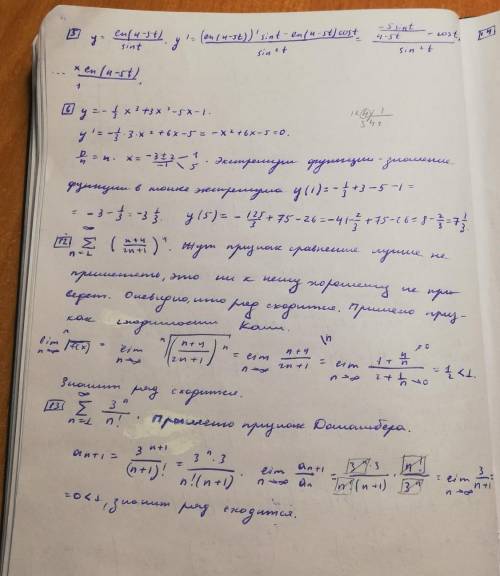 5 y = ln(4-5t)/sint . y' = ((ln(4-5t))' sint - ln(4-5t)cost)/sin²t = (-5sint/(4-5t) - cost·
x ln(4-5t))/sin²t
6 y = -1/3 x³ + 3x² - 5x - 1.
y' = -1/3 · 3·x² + 6x - 5 = -x² + 6x - 5 = 0.
D/4 = 4. x = (-3±2)/-1 1 5 . Экстремум функции - значение
функции в точке экстремума y(1) = -1/3 + 3 - 5 - 1 =
= -3 - 1/3 = -3 1/3. y(5) = -125/3 + 75 - 26 = -41 2/3 + 75 - 26 = 8 - 2/3 = 7 1/3
12 ∞ Σ n=1 ((n+4)/(2n+1))ⁿ. Тут признак сравнения лучше не
применять, это ни к чему хорошему не при
ведет. Очевидно, что ряд сходится. Применю приз-
нак сходимости Коши.
lim n→∞ ⁿ√f(x) = lim n→∞ ⁿ√((n+4)/(2n+1))ⁿ = lim n→∞ (n+4)/(2n+1) = \n = lim n→∞ (1 + 4/n →0)/(2 + 1/n →0) = 1/2 < 1.
Значит ряд сходится.
13 ∞ Σ n=1 3ⁿ/n! . Применю признак Даламбера.
aₙ₊₁ = 3ⁿ⁺¹/(n+1)! = 3ⁿ·3/(n!(n+1)) . lim n→∞ aₙ₊₁/aₙ = 3ⁿ·3/(n!(n+1)) · n!/3ⁿ = lim n→∞ 3/(n+1) =
= 0 < 1, значит ряд сходится.